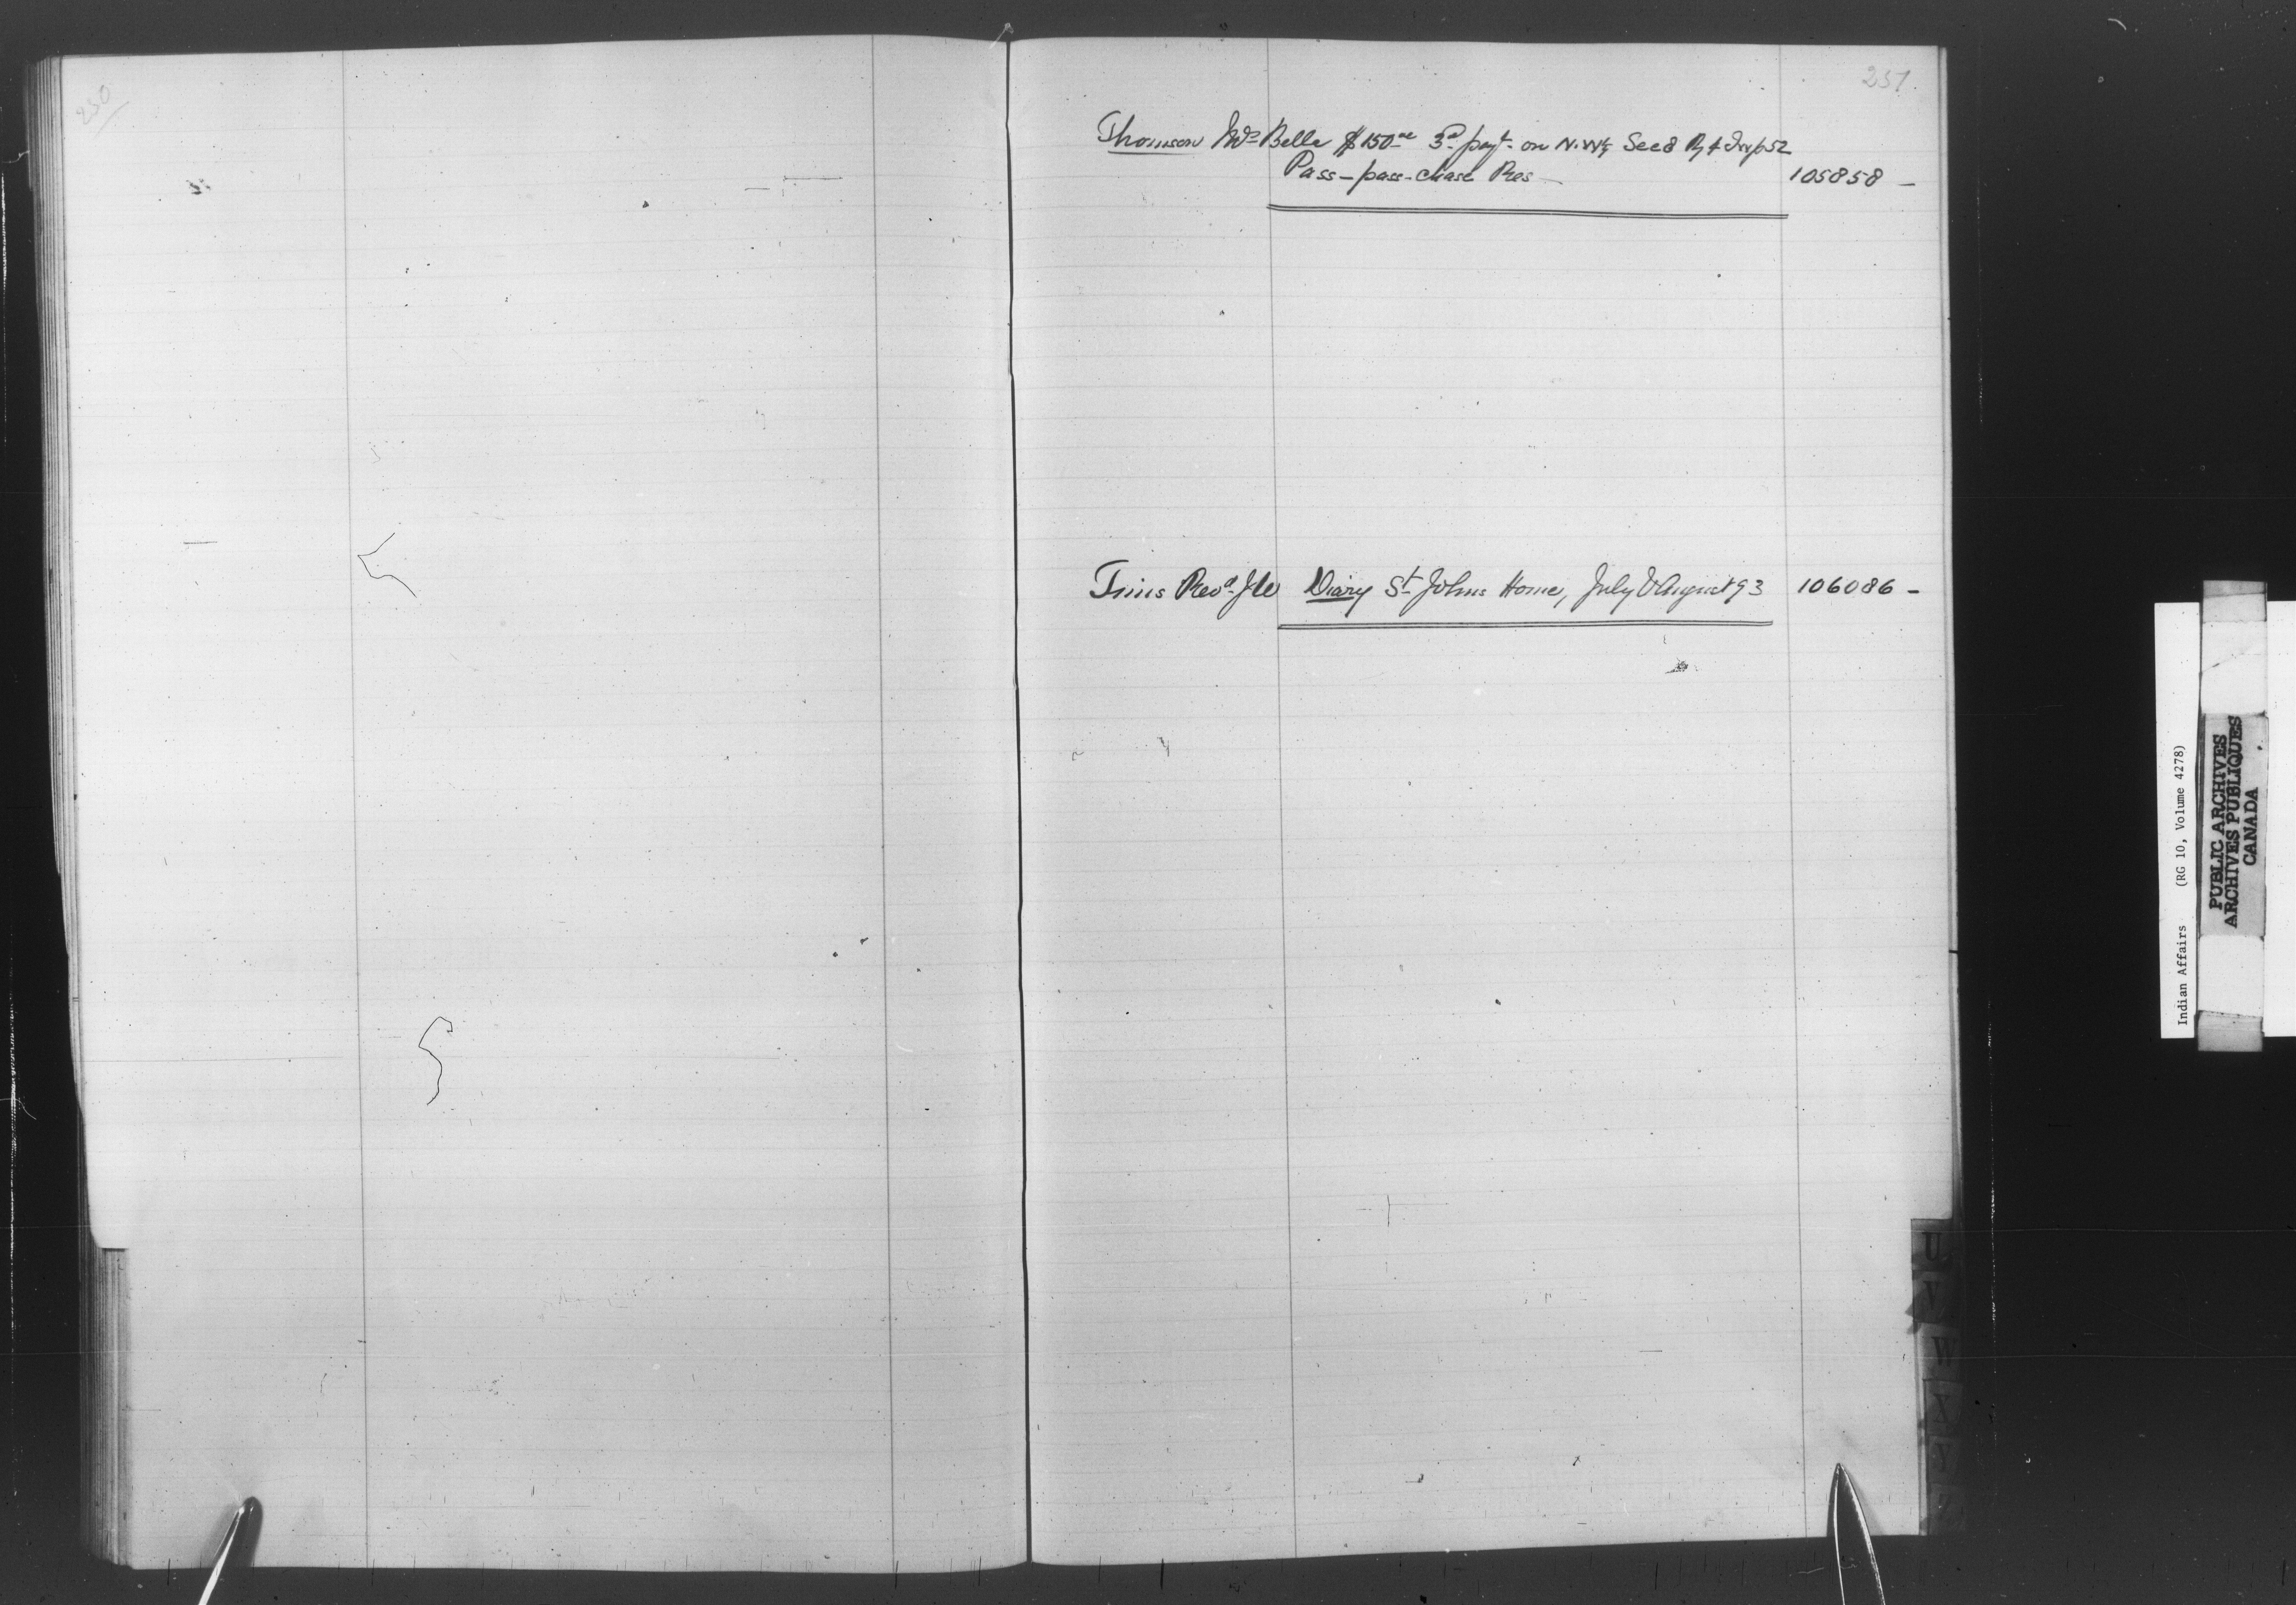 250
251
Thomson Mrs Belle $150.00 3rd payt on N.W¼ Sec 8 R 4 Twp 52
Pass-pass-chase Res — 105858 —
Tims Revd J W Diary St Johns Home, July & August 93 106086 —
U
V
W
X
Y
Z
Indian Affairs (RG 10, Volume 4278)
PUBLIC ARCHIVES
ARCHIVES PUBLIQUES
CANADA